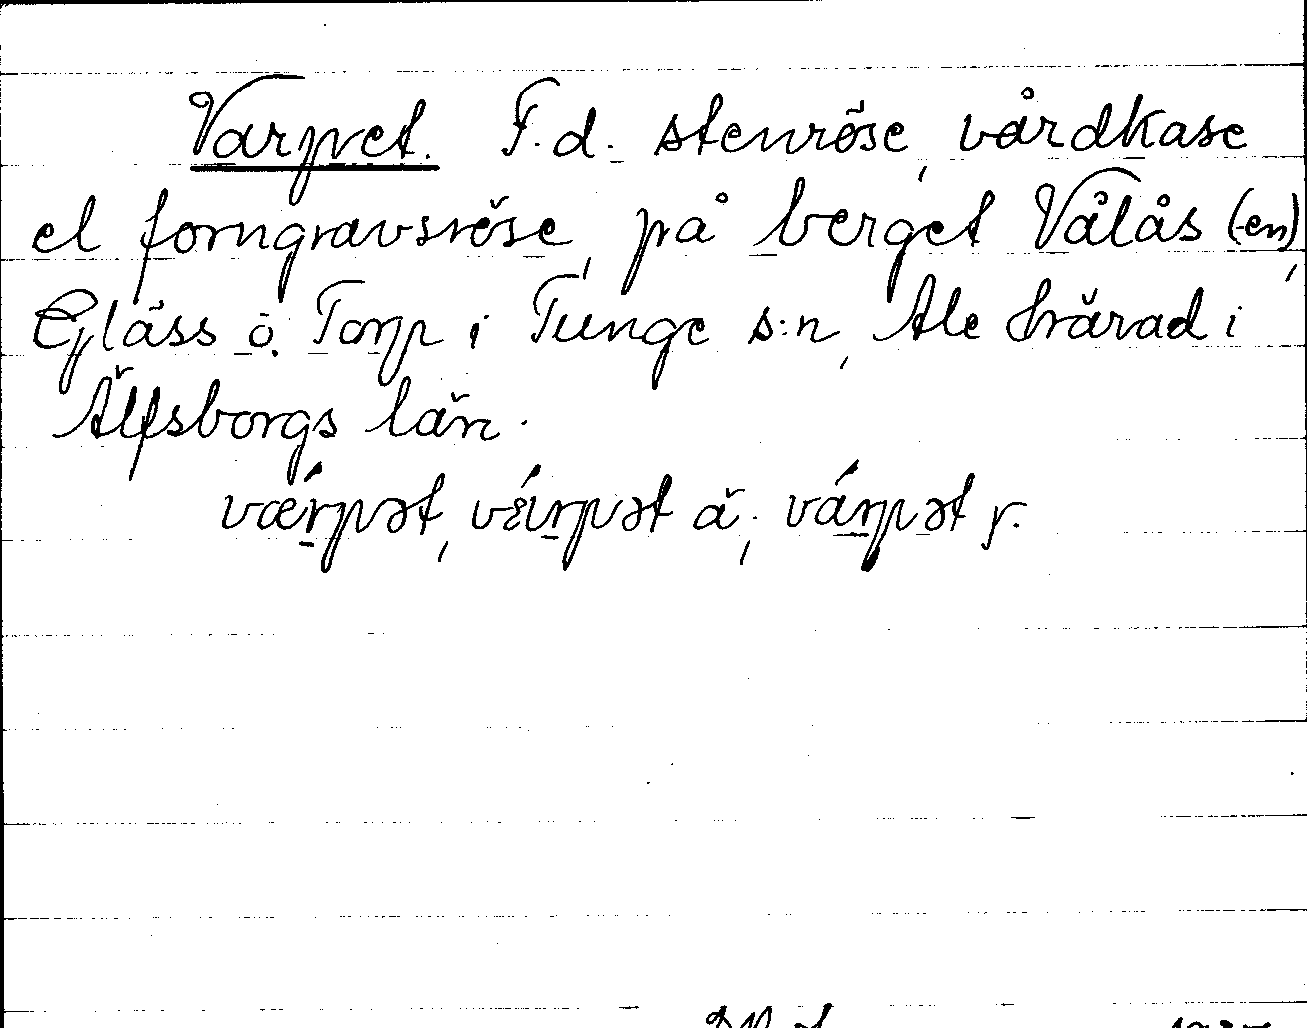 Varpet. F. d. stenröse, vårdkase
el forngravsröse, på berget Vålås (-en),
o. Torp i Tunge s:n, Ale härad i
Älfsborgs län.
vǽrpət, ä; várpət y.